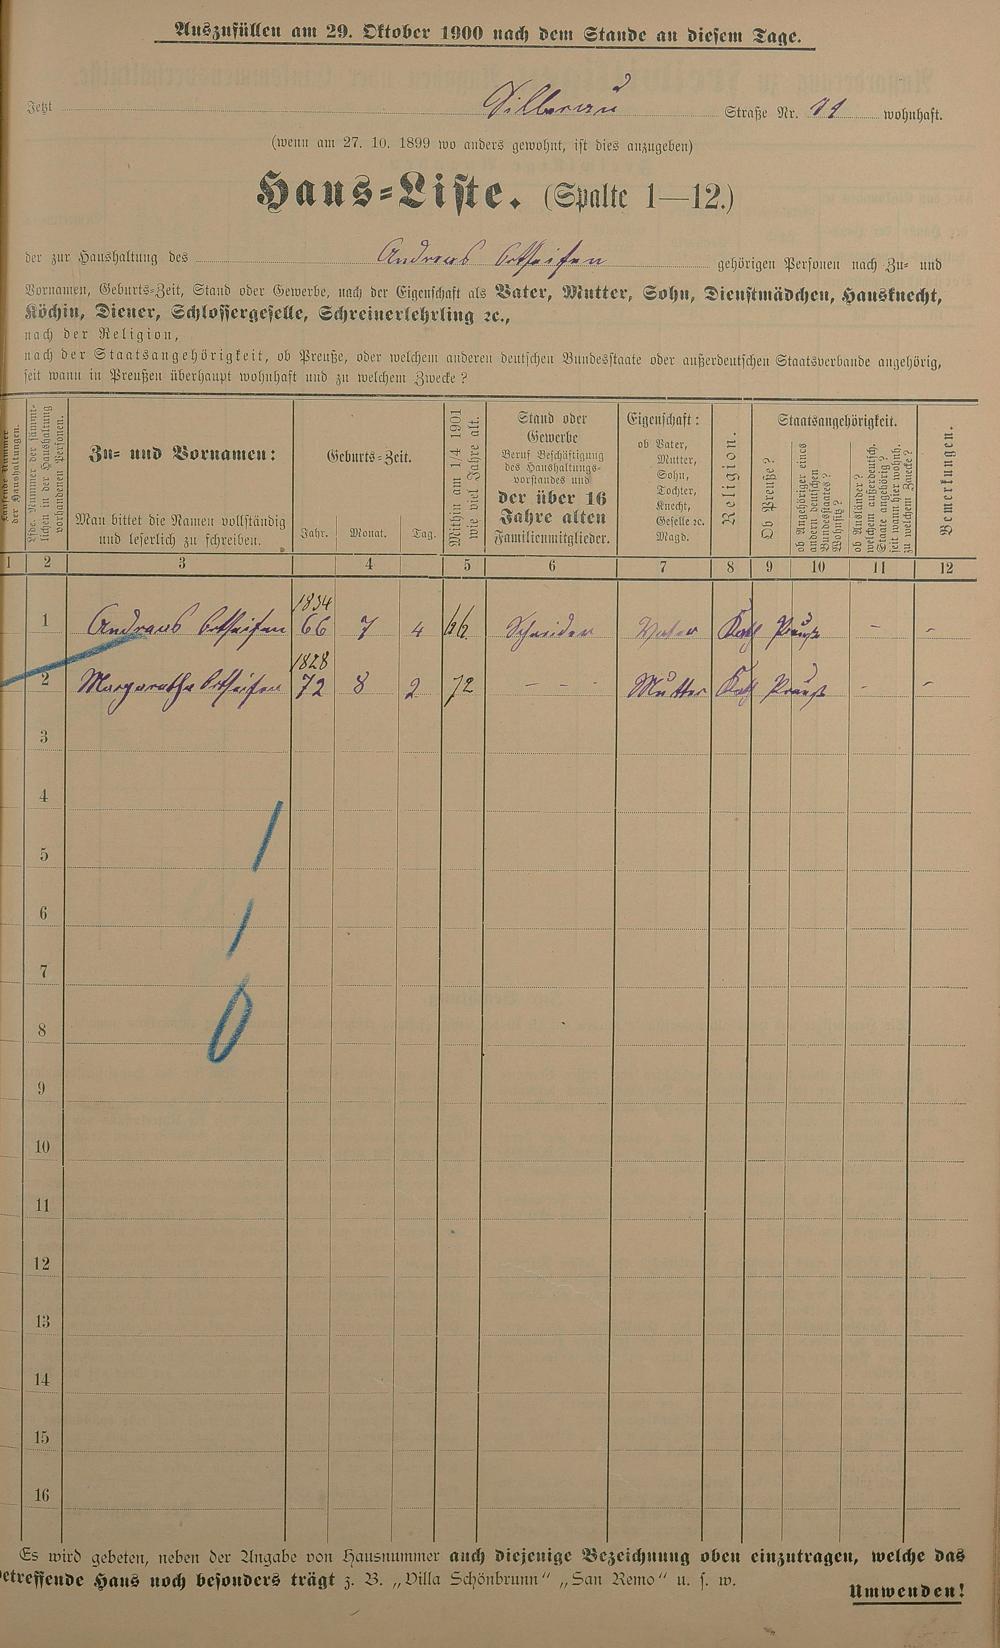 Auszufüllen am 29. Oktober 1900 nach dem Stande an diesem Tage.
Jetzt Silberau Straße Nr. 11 wohnhaft.
(wenn am 27. 10. 1899 wo anders gewohnt, ist dies anzugeben)
Haus-Liste. (Spalte 1—12.)
der zur Haushaltung des Andreas Ortseifen gehörigen Personen nach Zu- und
Vornamen, Geburts-Zeit, Stand oder Gewerbe, nach der Eigenschaft als Vater, Mutter, Sohn, Dienstmädchen, Hausknecht,
Köchin, Diener, Schlossergeselle, Schreinerlehrling ꝛc.,
nach der Religion,
nach der Staatsangehörigkeit, ob Preuße, oder welchem anderen deutschen Bundesstaate oder außerdeutschen Staatsverbande angehörig,
seit wann in Preußen überhaupt wohnhaft und zu welchem Zwecke?
Laufende Nummer
der Haushaltungen.
Lfde. Nummer der sämmt-
lichen in der Haushaltung
vorhandenen Personen.
Zu- und Vornamen:
Man bittet die Namen vollständig
und leserlich zu schreiben.
Geburts-Zeit.
Jahr. Monat. Tag.
Mithin am 1/4 1901
wie viel Jahre alt.
Stand oder
Gewerbe
Beruf Beschäftigung
des Haushaltungs-
vorstandes und
der über 16
Jahre alten
Familienmitglieder.
Eigenschaft:
ob Vater,
Mutter,
Sohn,
Tochter,
Knecht,
Geselle ꝛc.
Magd.
Religion.
Staatsangehörigkeit.
Ob Preuße?
ob Angehöriger eines
andern deutschen
Bundesstaates?
Wohnsitz?
ob Ausländer?
welchem außerdeutsch.
Staate angehörig?
seit wann hier wohnh.
zu welchem Zwecke?
Bemerkungen.
1 2 3 4 5 6 7 8 9 10 11 12
1834
1 Andreas Ortseifen 66 7 4 66 Schneider Vater Kath Preuße – –
1828
2 Margaretha Ortseifen 72 8 2 72 – – – Mutter Kath Preuße – –
3
4
5
6
7
8
9
10
11
12
13
14
15
16
Es wird gebeten, neben der Angabe von Hausnummer auch diejenige Bezeichnung oben einzutragen, welche das
betreffende Haus noch besonders trägt z. B. „Villa Schönbrunn“ „San Remo“ u. s. w.
Umwenden!